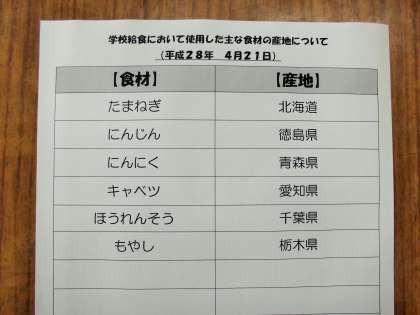 学校給食において使用した主な食材の産地について
（平成２８年　４月２１日）
【食材】　【産地】
たまねぎ　北海道
にんじん　徳島県
にんにく　青森県
キャベツ　愛知県
ほうれんそう　千葉県
もやし　栃木県